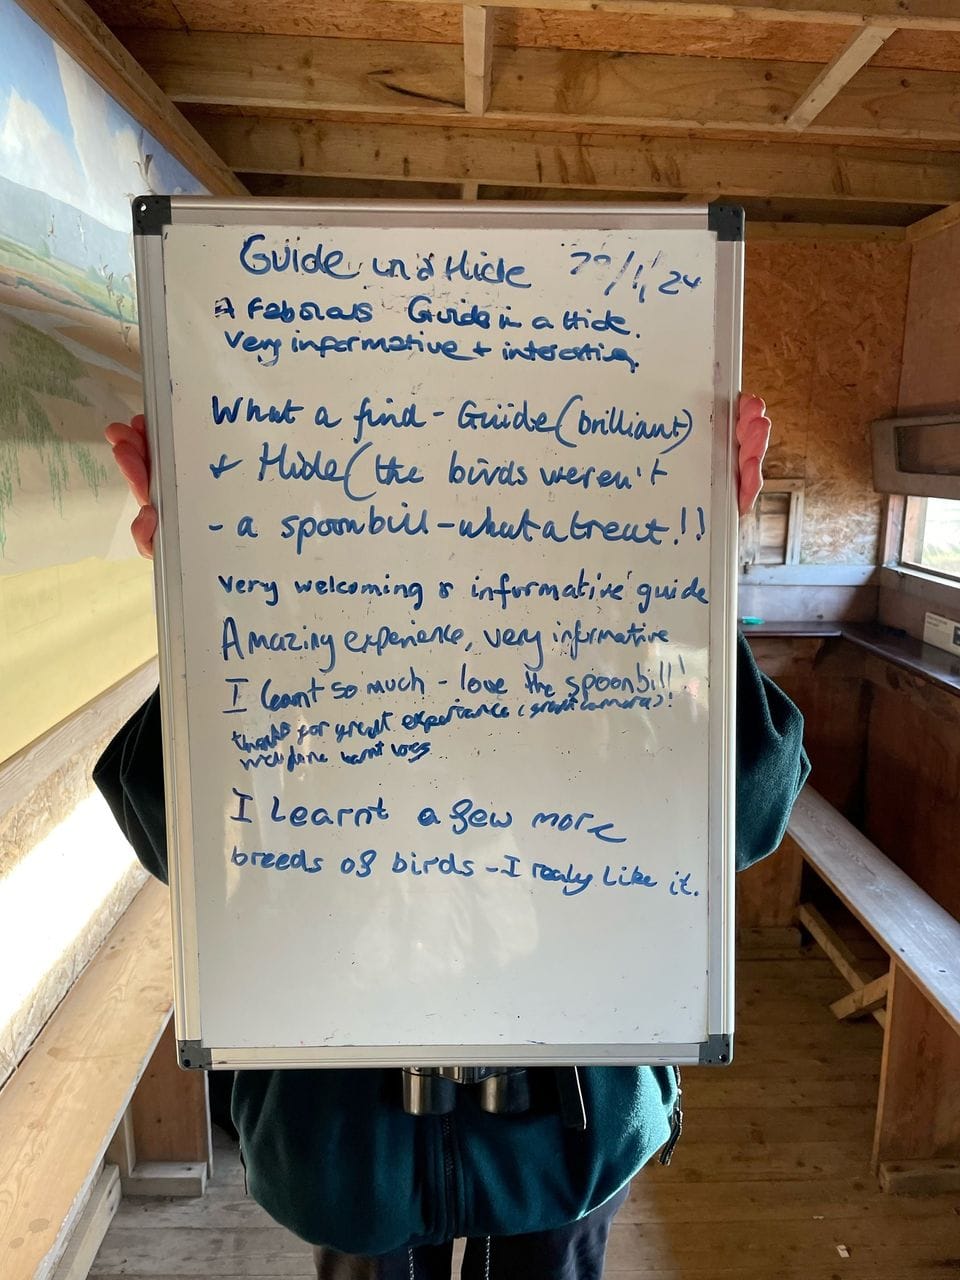 Guide in a Hide /1/24
A Fabolous Guide in a Hide.
Very informative + interesting.
What a find - Guide (brilliant)
+ Hide (the birds weren't
- a spoonbill - what a treat!!
very welcoming & informative guide
Amazing experience, very informative
I learnt so much - love the spoonbill!
thanks for great experience (great camera)!
well done
I Learnt a few more
breeds of birds - I realy like it.